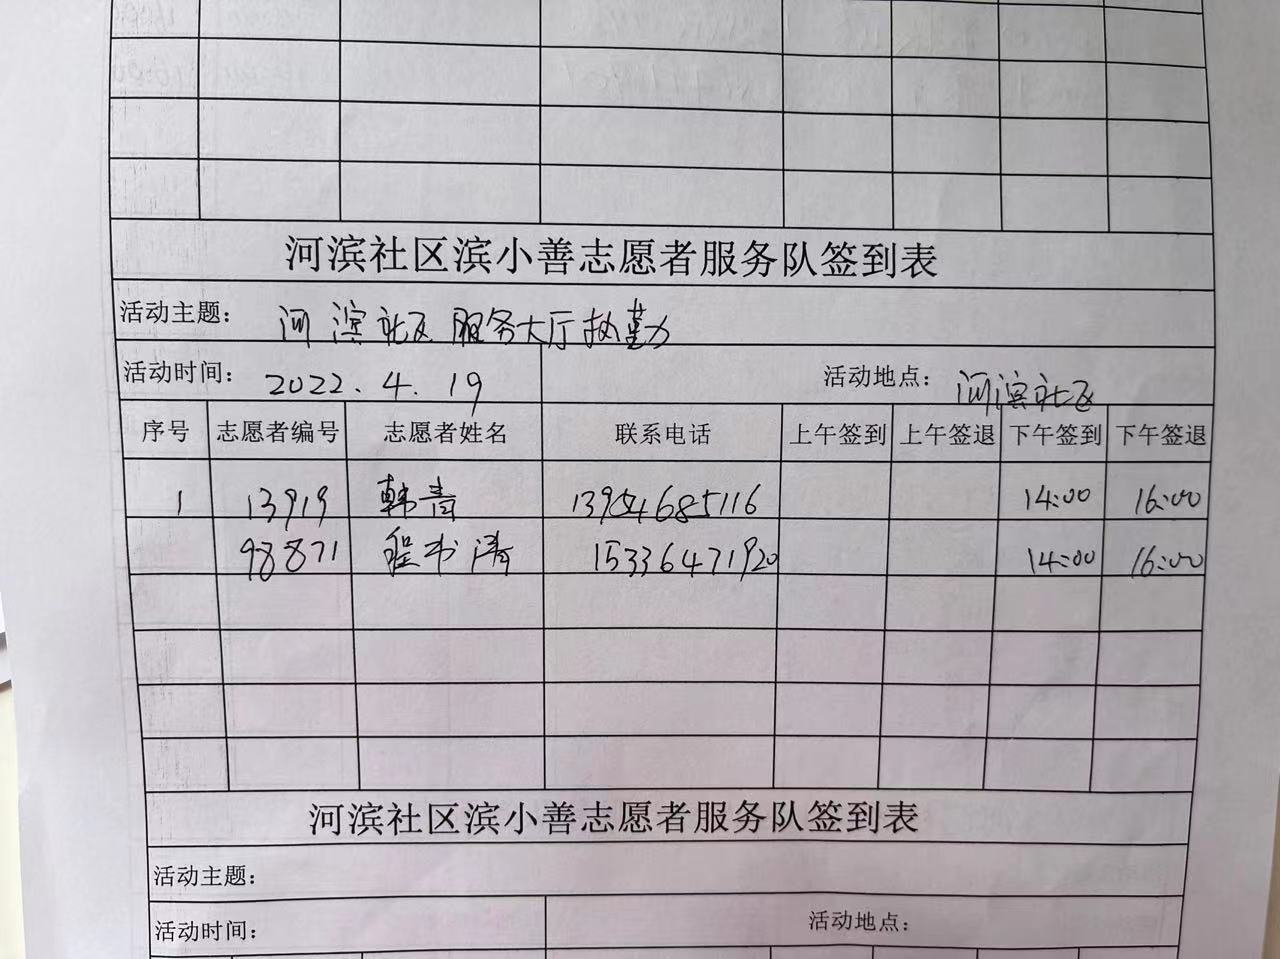 河滨社区滨小善志愿者服务队签到表
活动主题： 河滨社区服务大厅执勤
活动时间： 2022.4.19 活动地点： 河滨社区
序号 志愿者编号 志愿者姓名 联系电话 上午签到 上午签退 下午签到 下午签退
1 13919 韩青 13954685116 14:00 16:00
98871 程书涛 15336471920 14:00 16:00
河滨社区滨小善志愿者服务队签到表
活动主题：
活动时间： 活动地点：